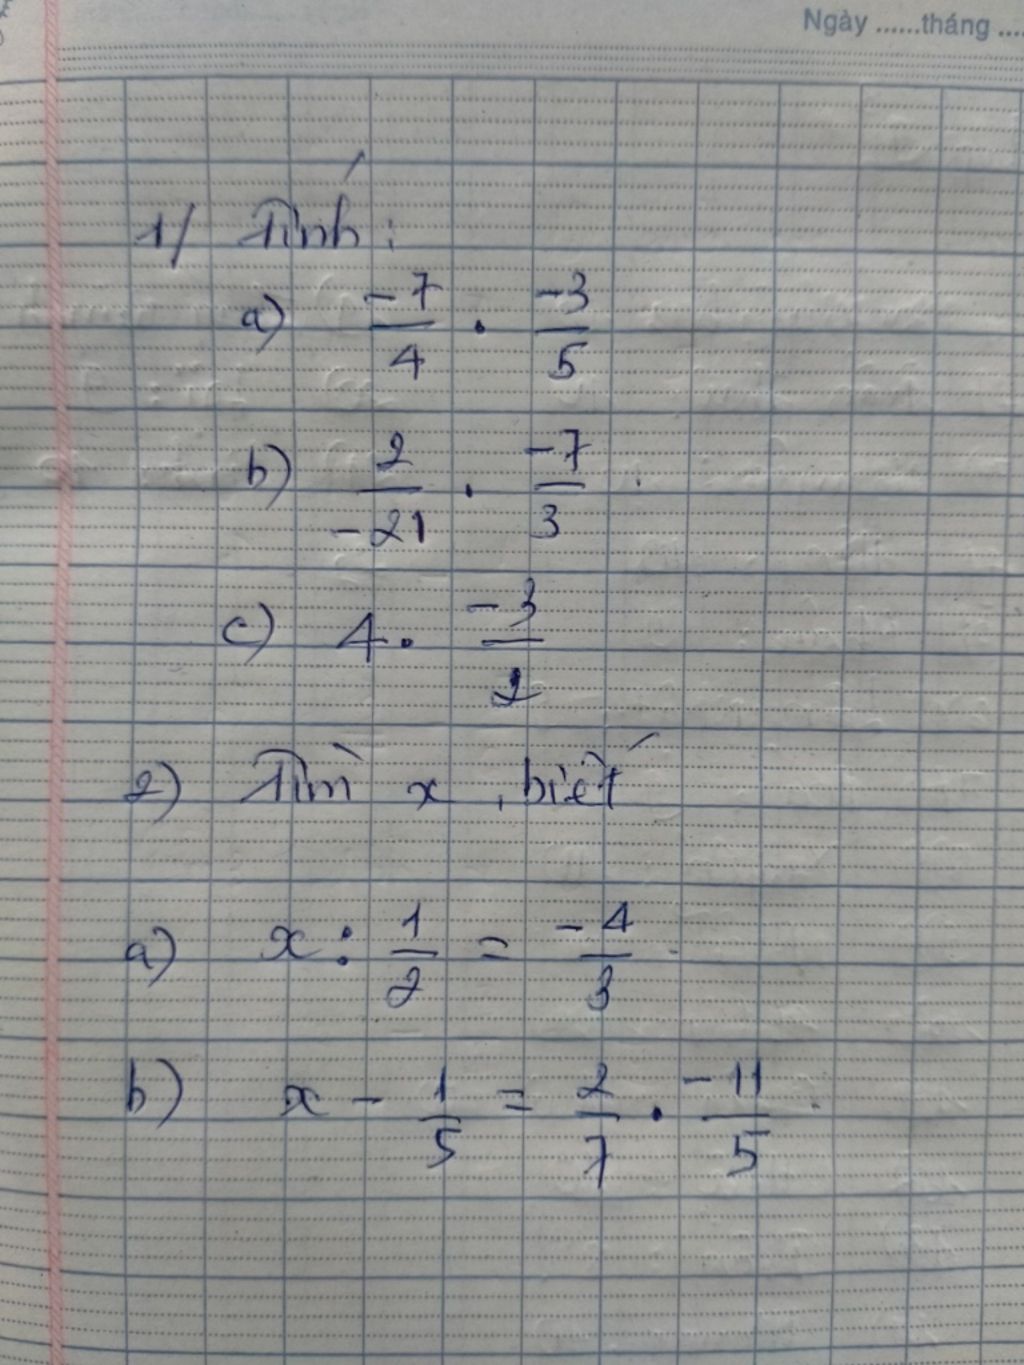 Ngày ......tháng ....
1/ Tính :
a) -7/4 . -3/5
b) 2/-21 . -7/3
c) 4. -3/2
2) Tìm x , biết
a) x : 1/2 = -4/3
b) x - 1/5 = 2/7 . -11/5